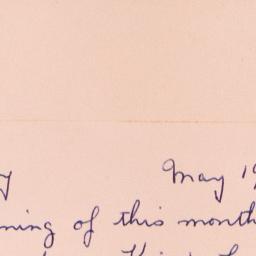 y May 19
ning of this month